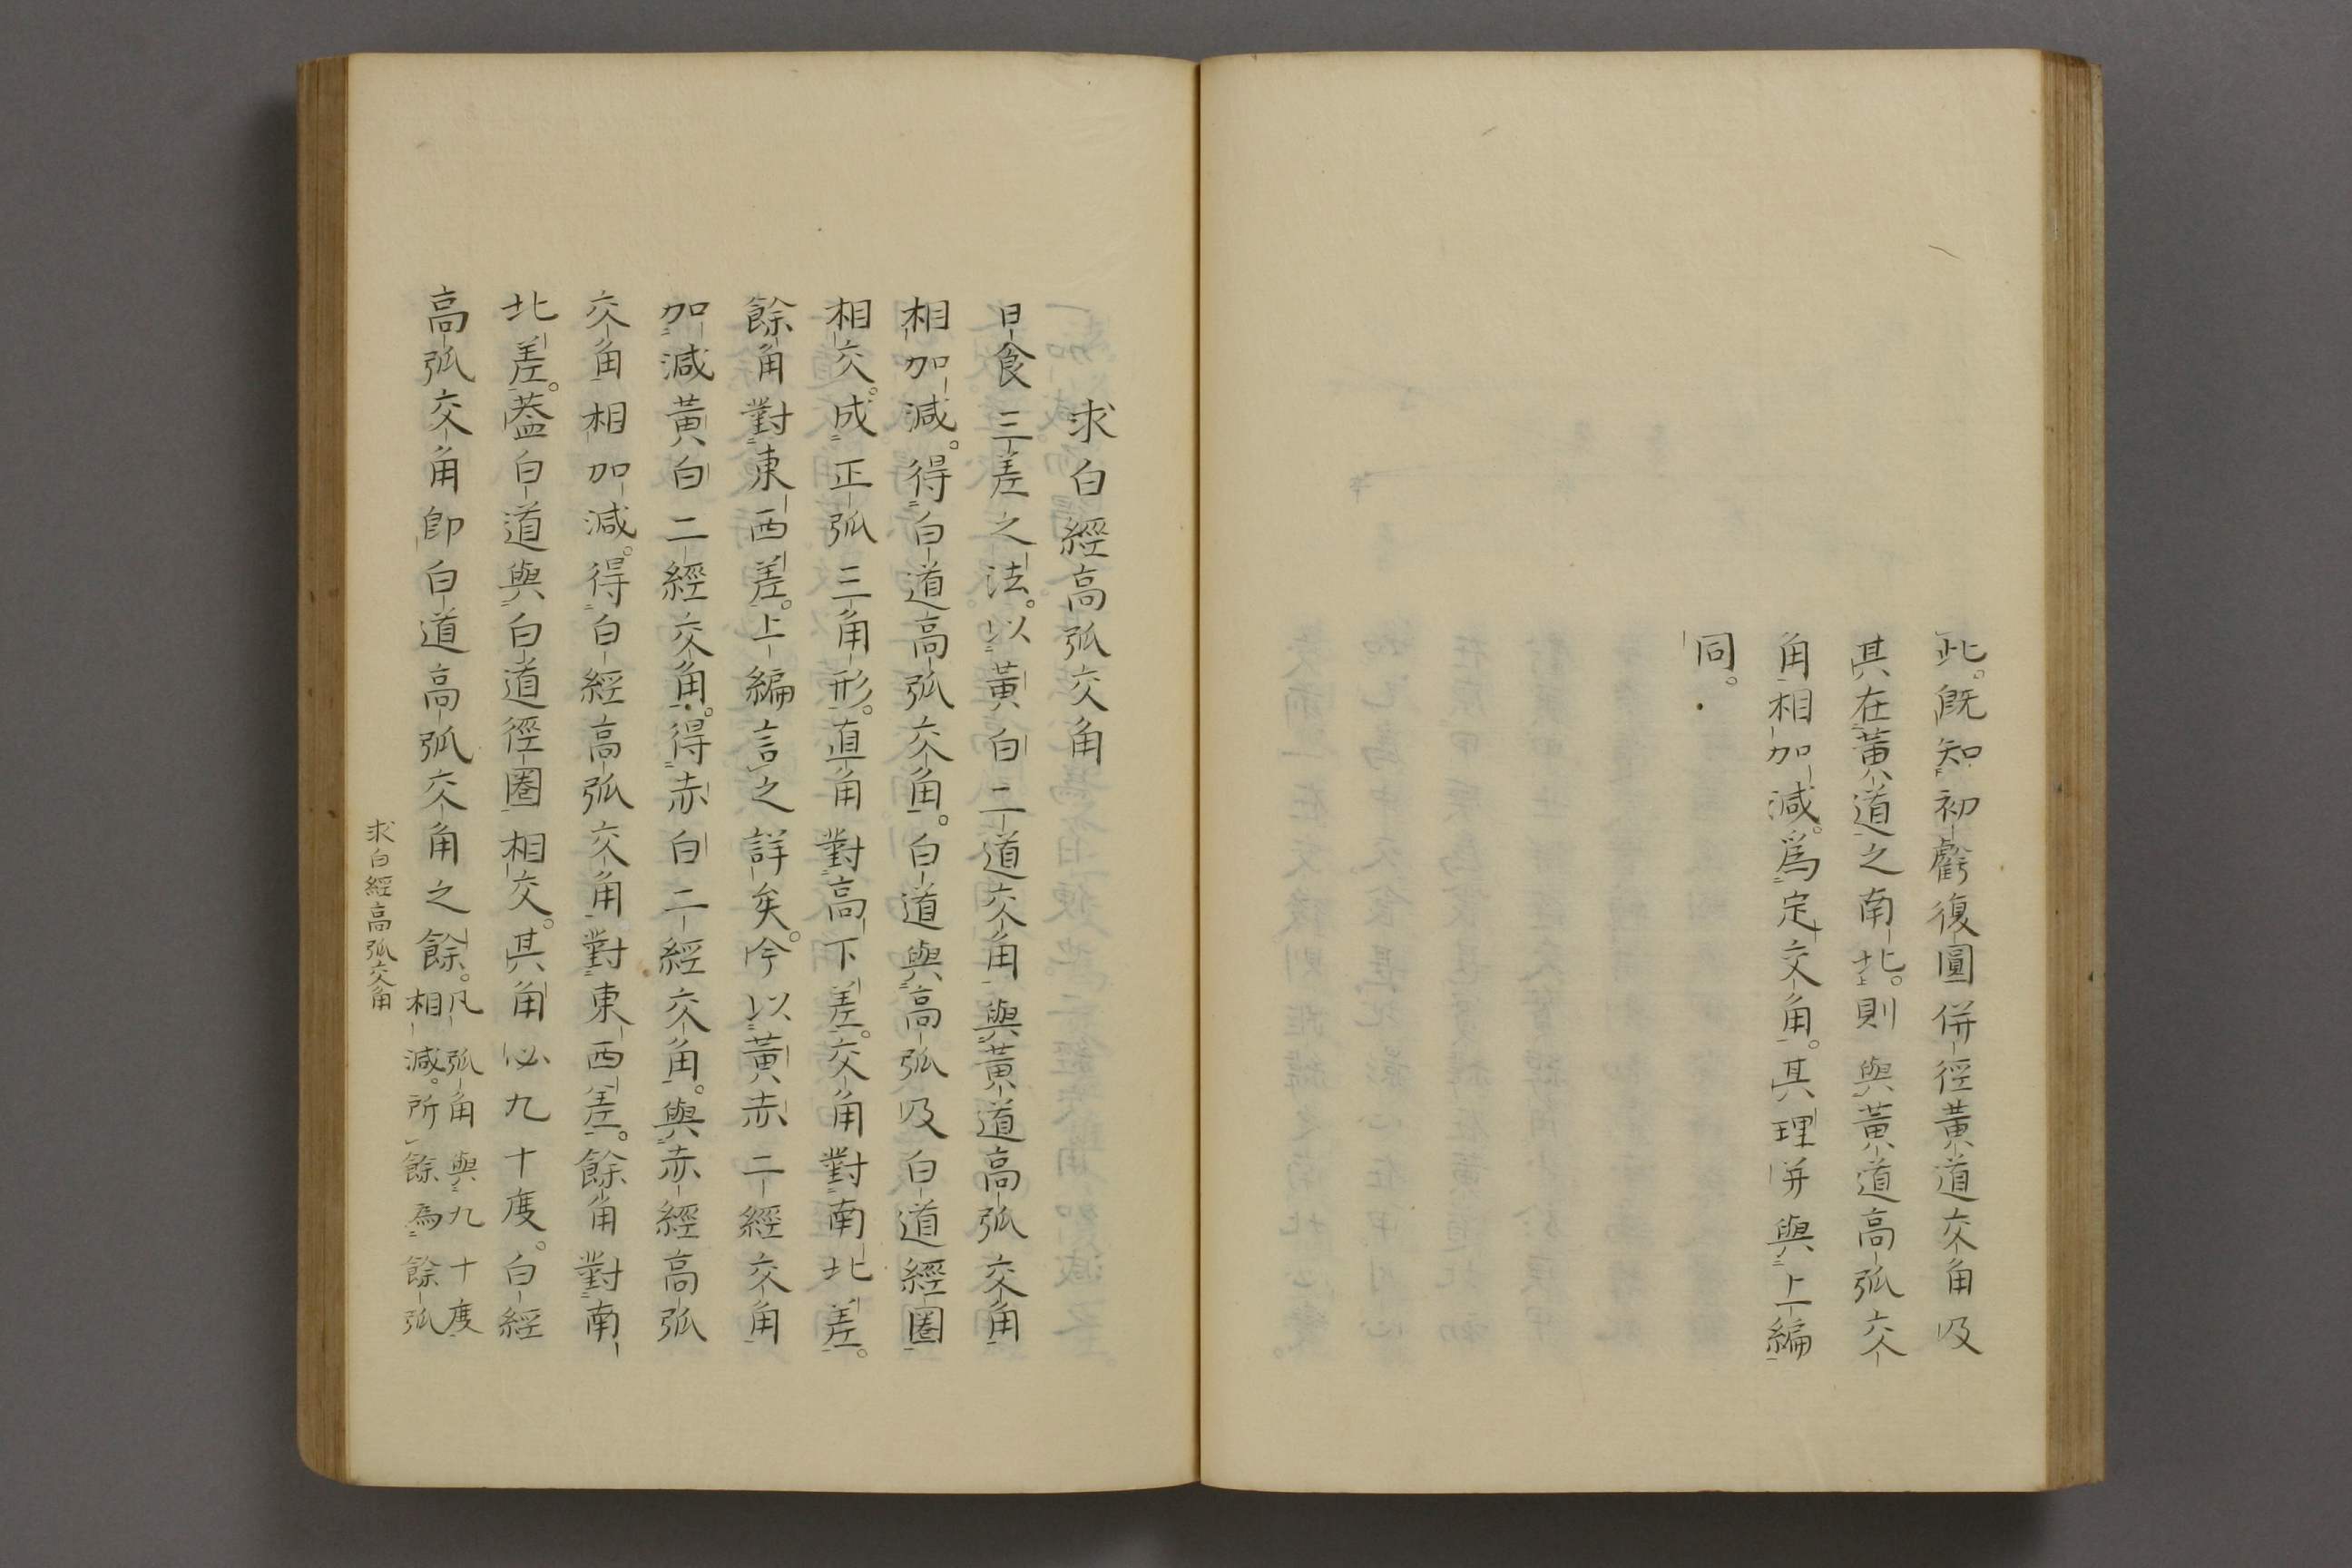 此。既知初虧復圓併徑黃道交角及
其在黃道之南北。則與黃道高弧交
角相加減。爲定交角。其理併與上編
同。
求白經高弧交角
日食三差之法。以黃白二道交角與黃道高弧交角
相加減。得白道高弧交角。白道與高弧及白道經圈
相交。成正弧三角形。直角對高下差。交角對南北差。
餘角對東西差。上編言之詳矣。今以黃赤二經交角
加減黃白二經交角。得赤白二經交角。與赤經高弧
交角相加減。得白經高弧交角。對東西差。餘角對南
北差。葢白道與白道徑圈相交。其角必九十度。白經
高弧交角即白道高弧交角之餘。
凡弧角與九十度
相減。所餘爲餘弧
求白經高弧交角